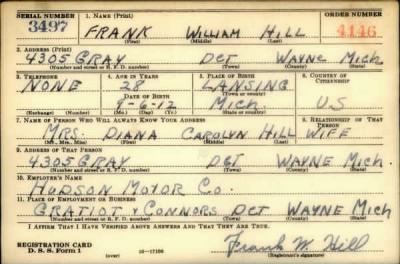 SERIAL NUMBER 1. NAME (Print) ORDER NUMBER
3497 FRANK WILLIAM HILL 4146
(First) (Middle) (Last)
2. ADDRESS (Print)
4305 GRAY DET WAYNE MICH.
(Number and street or R. F. D. number) (Town) (County) (State)
3. TELEPHONE 4. AGE IN YEARS 5. PLACE OF BIRTH 6. COUNTRY OF CITIZENSHIP
NONE 28 LANSING
DATE OF BIRTH (Town or county)
9-6-12 MICH. U S
(Exchange) (Number) (Mo.) (Day) (Yr.) (State or country)
7. NAME OF PERSON WHO WILL ALWAYS KNOW YOUR ADDRESS 8. RELATIONSHIP OF THAT PERSON
MRS. DIANA CAROLYN HILL WIFE
(Mr., Mrs., Miss) (First) (Middle) (Last)
9. ADDRESS OF THAT PERSON
4305 GRAY DET WAYNE MICH.
(Number and street or R. F. D. number) (Town) (County) (State)
10. EMPLOYER'S NAME
HUDSON MOTOR CO.
11. PLACE OF EMPLOYMENT OR BUSINESS
GRATIOT & CONNORS DET WAYNE MICH
(Number and street or R. F. D. number) (Town) (County) (State)
I AFFIRM THAT I HAVE VERIFIED ABOVE ANSWERS AND THAT THEY ARE TRUE.
REGISTRATION CARD Frank W. Hill
D. S. S. Form 1 (over) 16—17106 (Registrant's signature)